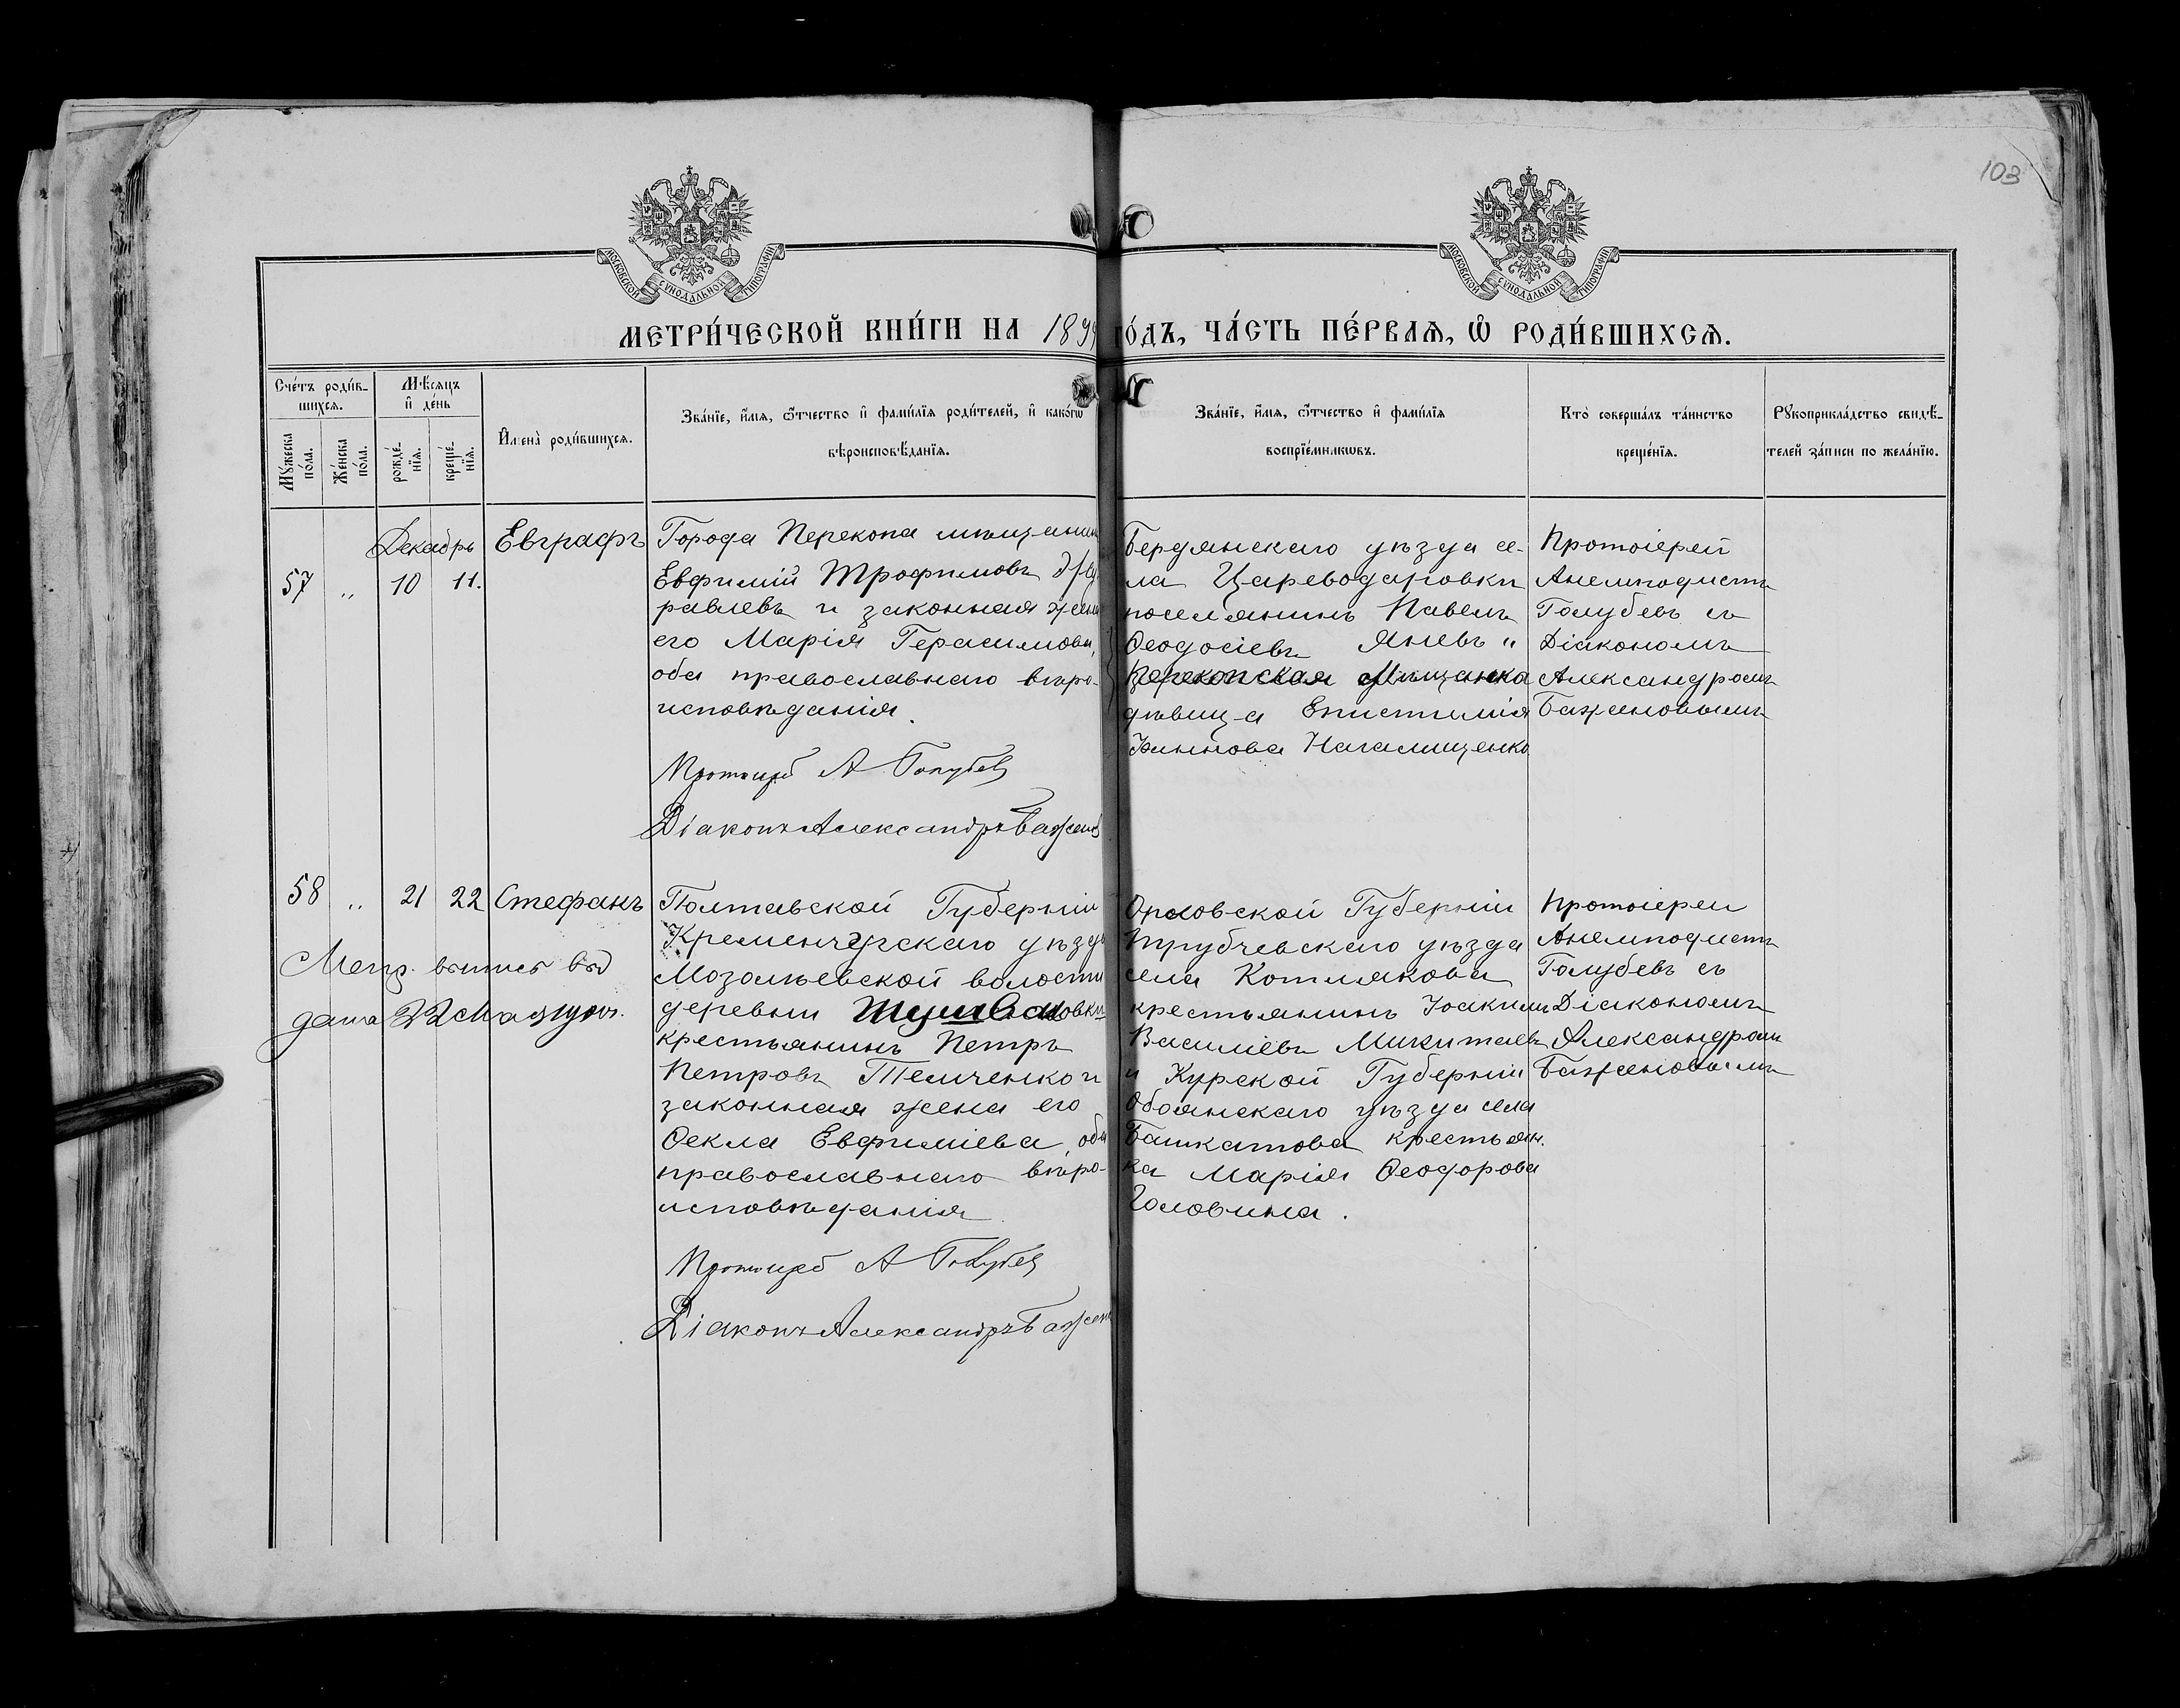 103
МОСКОВСКОЙ СУНОДАЛЬНОЙ ТИПОГРАФІИ
МОСКОВСКОЙ СУНОДАЛЬНОЙ ТИПОГРАФІИ
МЕТРИ́ЧЕСКОЙ КНИ́ГИ НА 1899 ГО́ДЪ, ЧА́СТЬ ПЕ́РВАЯ, Ѡ҆ РОДИ́ВШИХСЯ.
Сче́тъ роди́в-
шихся.
Мѣ́сяцъ
и҆ де́нь
Мꙋ́жеска
по́ла.
Же́нска
по́ла.
рожде́-
нїя.
креще́-
нїя.
И҆мена̀ роди́вшихся.
Зва́нїе, и҆́мя, ѻ҆́тчество и҆ фами́лїя роди́телей, и҆ како́гѡ
вѣроисповѣ́данїя.
Зва́нїе, и҆́мя, ѻ҆́тчество и҆ фами́лїя
воспрїе́мникѡвъ.
Кто̀ соверша́лъ та́инство
креще́нїя.
Рꙋкоприкла́дство свидѣ́-
телей за́писи по жела́нїю.
Декабрь
57 „ 10 11.
Евграфъ
Города Перекопа мѣщанинъ
Евфимій Трофимовъ
равлевъ и законная жена
его Марія Герасимова,
оба православнаго вѣро-
исповѣданія.
Протоіерей А Голубев
Діаконъ Александръ Баженов
Бердянскаго уѣзда се-
ла Цареводаровки
поселянинъ Павелъ
Ѳеодосіевъ Яневъ и
Перекопская Мѣщанка
дѣвица Епистимія
Іоаннова Нагалищенко
Протоіерей
Анемподистъ
Голубевъ съ
Діакономъ
Александромъ
Баженовымъ
58 „ 21 22 Стефанъ
Метр. выпись вы
дана 22 Мая
Полтавской Губерніи
Кременчугскаго уѣзда
Мозолѣевской волости
деревни
крестьянинъ Петръ
Петровъ Темченко и
законная жена его
Ѳекла Евфиміева, оба
православнаго вѣро-
исповѣданія
Протоіерей А Голубев
Діаконъ Александръ Баженов
Орловской Губерніи
Трубчевскаго уѣзда
села Котлякова
крестьянинъ Іоакимъ
Василіевъ Микитаевъ
и Курской Губерніи
Обоянскаго уѣзда села
Башкатова крестьян.
ка Марія Ѳеодорова
Головина.
Протоіереи
Анемподистъ
Голубевъ съ
Діакономъ
Александромъ
Баженовымъ